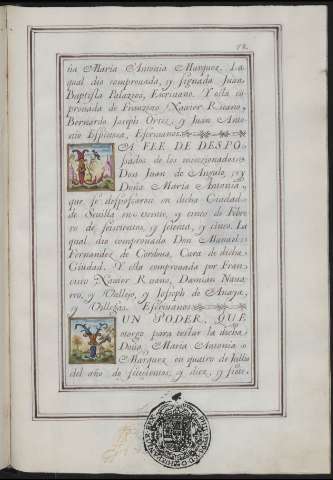 ña Maria Antonia Marquez. La
qual dio comprovada, y signada Juan
Baptista Palazios, Escrivano. Y esta co-
provada de Franzisco Xavier Rivano,
Bernardo Joseph Ortiz, y Juan Anto-
nio Espinosa, Escrivanos.
LA FEE DE DESPO-
sados de los mencionados
Don Juan de Angulo, y
Doña Maria Antonia,
que se desposaron en dicha Ciudad
de Sevilla en veinte, y cinco de Febre-
ro de seiscientos, y setenta, y cinco. La
qual dio comprovada Don Manuel
Fernandez de Cordova, Cura de dicha
Ciudad. Y esta comprovada por Fran-
cisco Xavier Rivano, Damian Nava-
rro, y Vallejo, y Joseph de Anaya,
y Villegas, Escrivanos.
UN PODER, QUE
otorgo para testar la dicha
Doña Maria Antonia
Marquez en quatro de Julio
del año de setecientos, y diez, y siete.